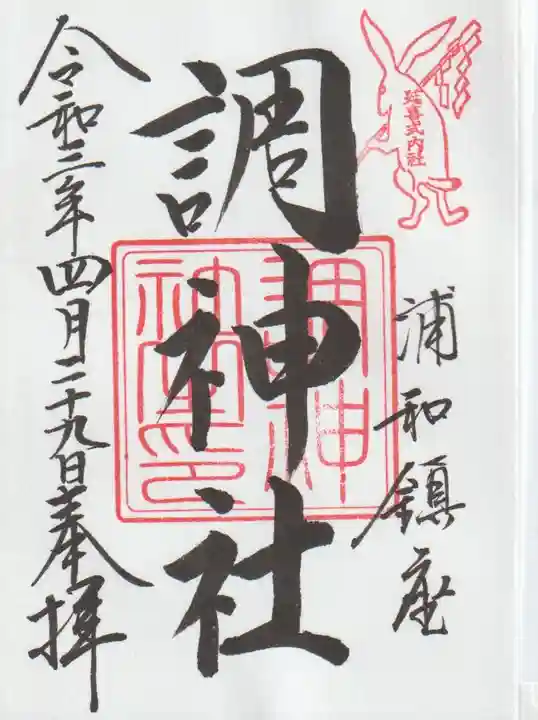 延喜式内社
浦和鎮座
調神社
令和三年四月二十九日奉拝